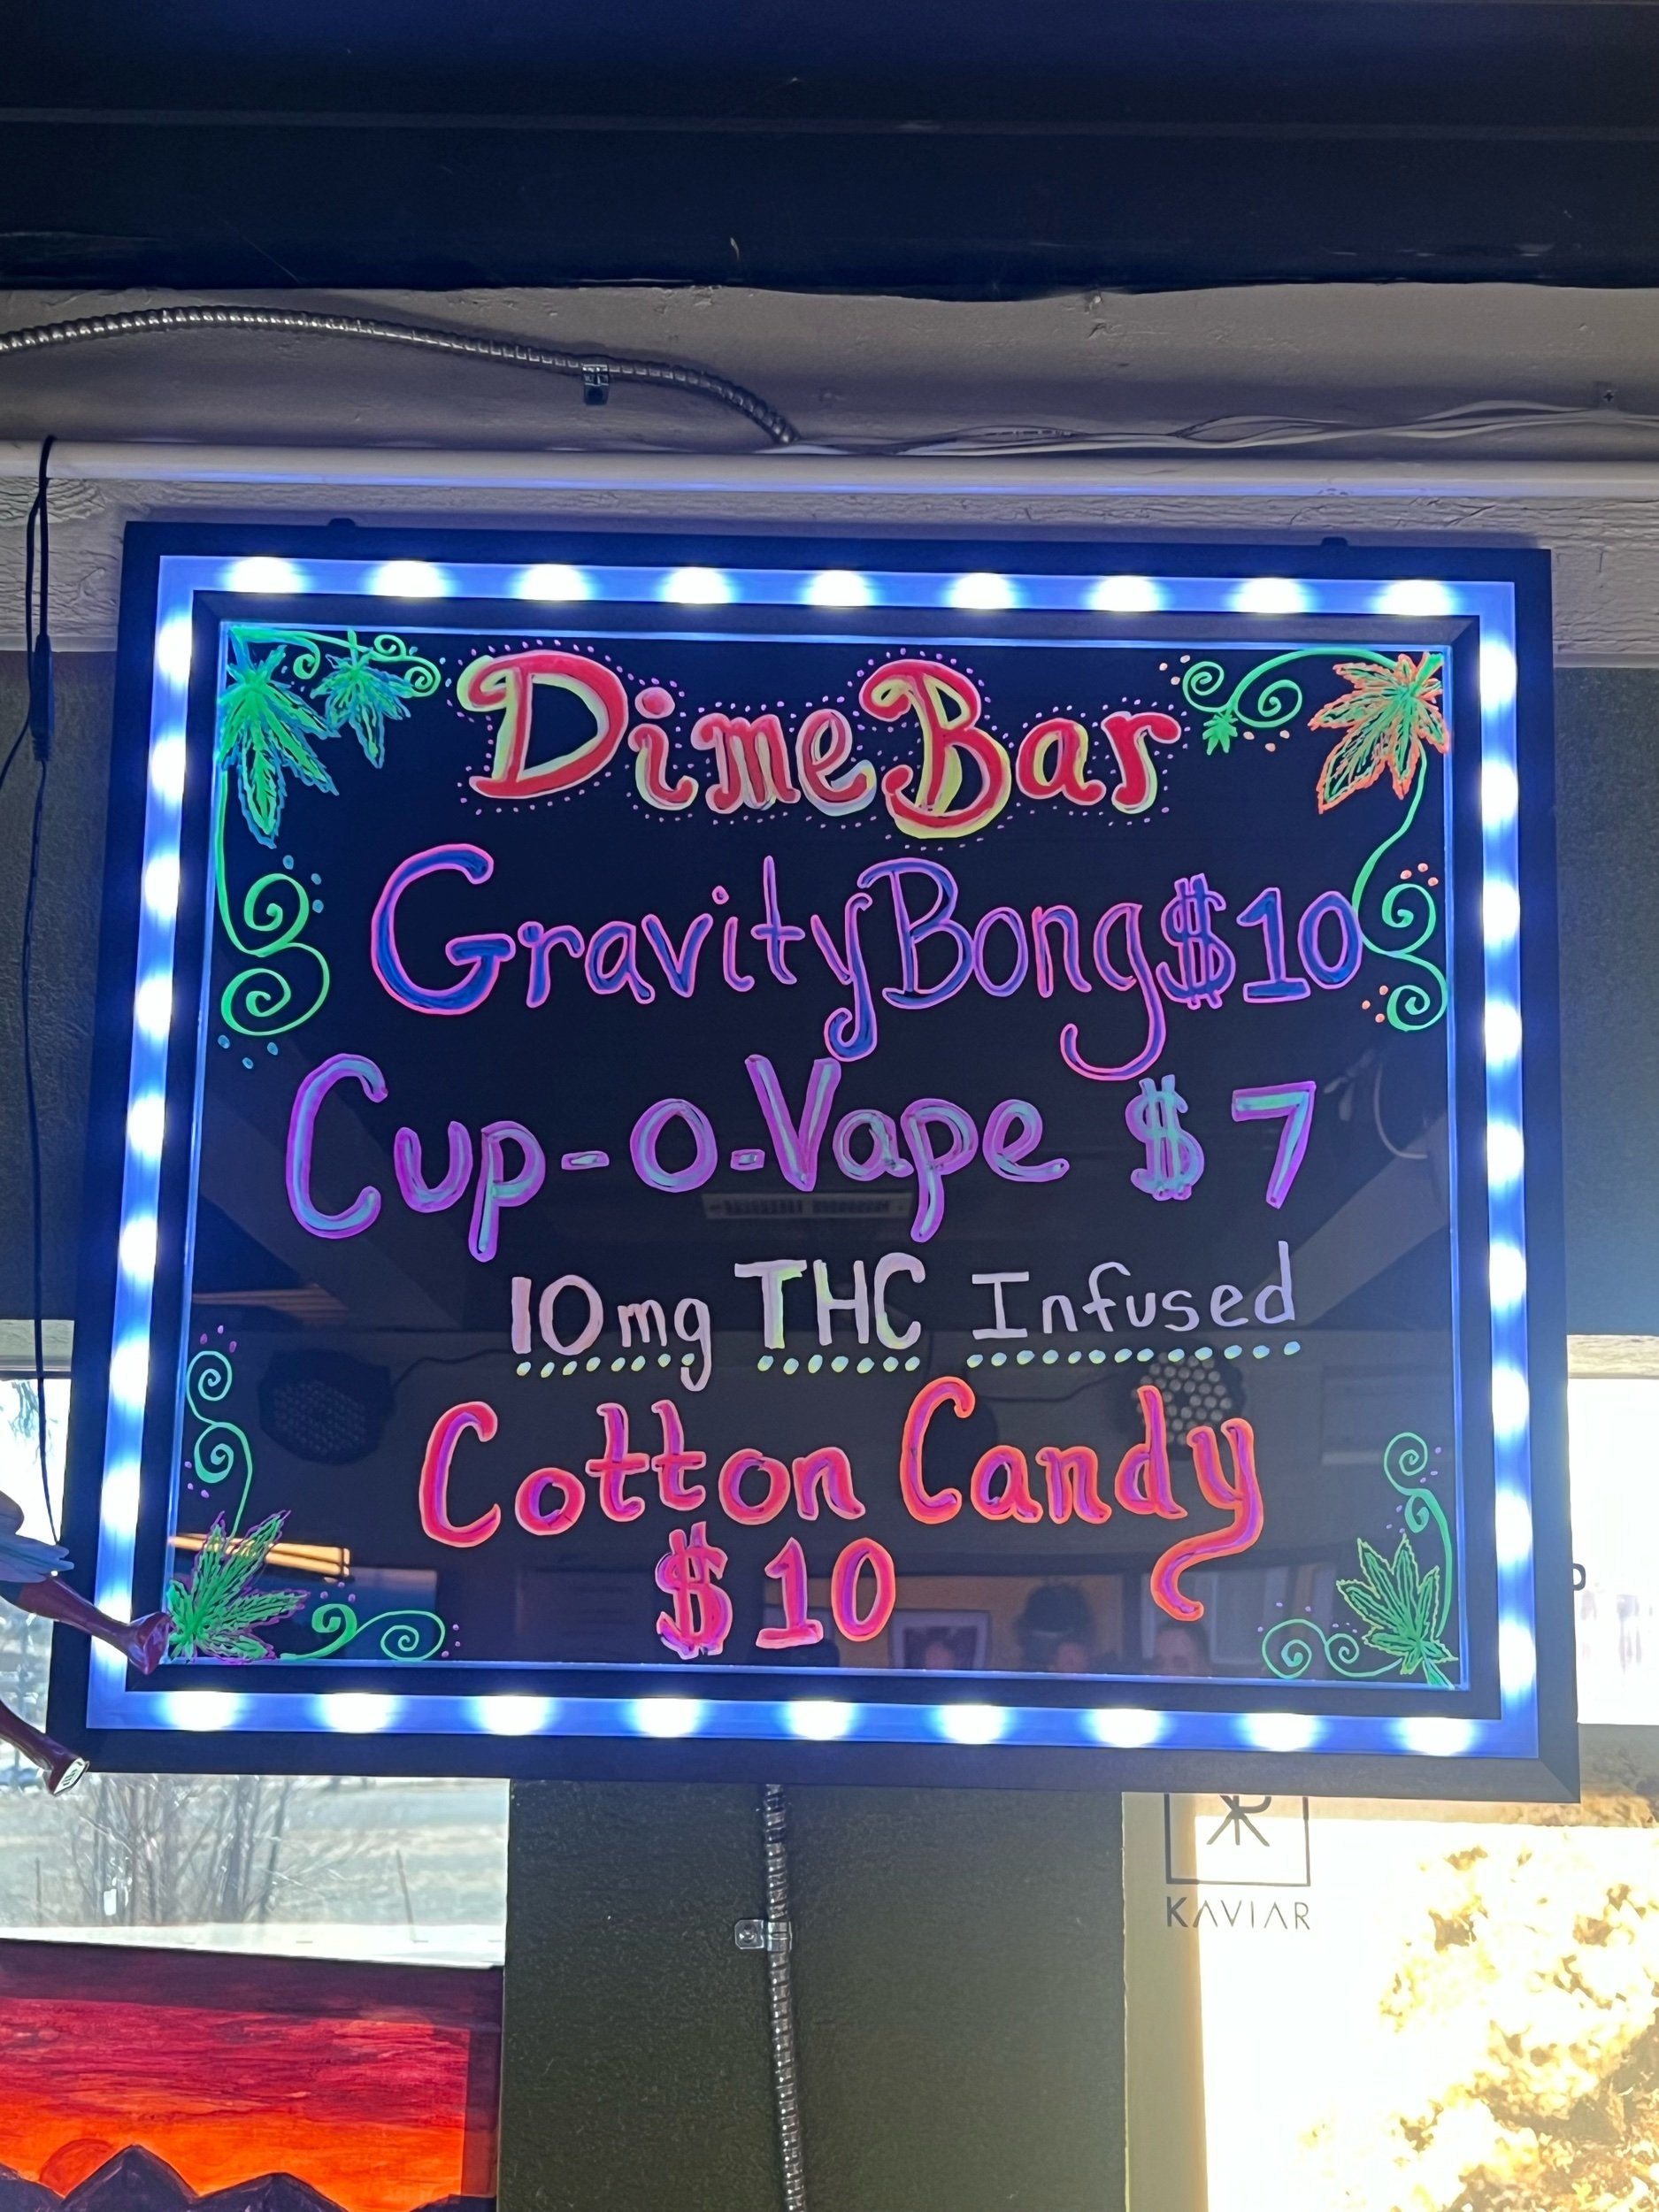 Dime Bar
Gravity Bong $10
Cup-o-Vape $7
10mg THC Infused
Cotton Candy
$10
KAVIAR